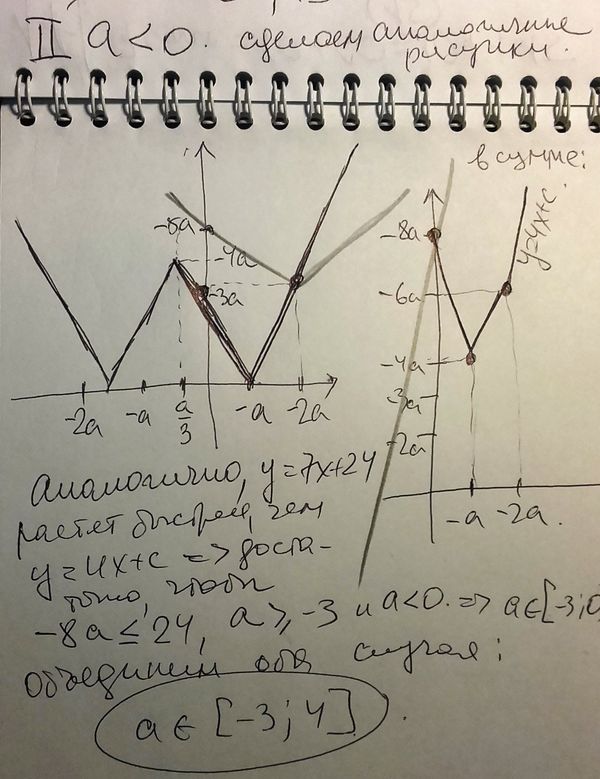 II a<0. сделаем аналогичные
рисунки.
в сумме:
-8a
-4a
-3a
-2a -a a/3 -a -2a
y=4x+c.
-8a
-6a
-4a
-3a
-2a
-a -2a.
Аналогично, y=7x+24
растёт быстрее, чем
y=4x+c => доста-
точно, чтобы
-8a≤24, a≥-3 и a<0. => a∈[-3;0
объединим оба случая:
a∈[-3;4].